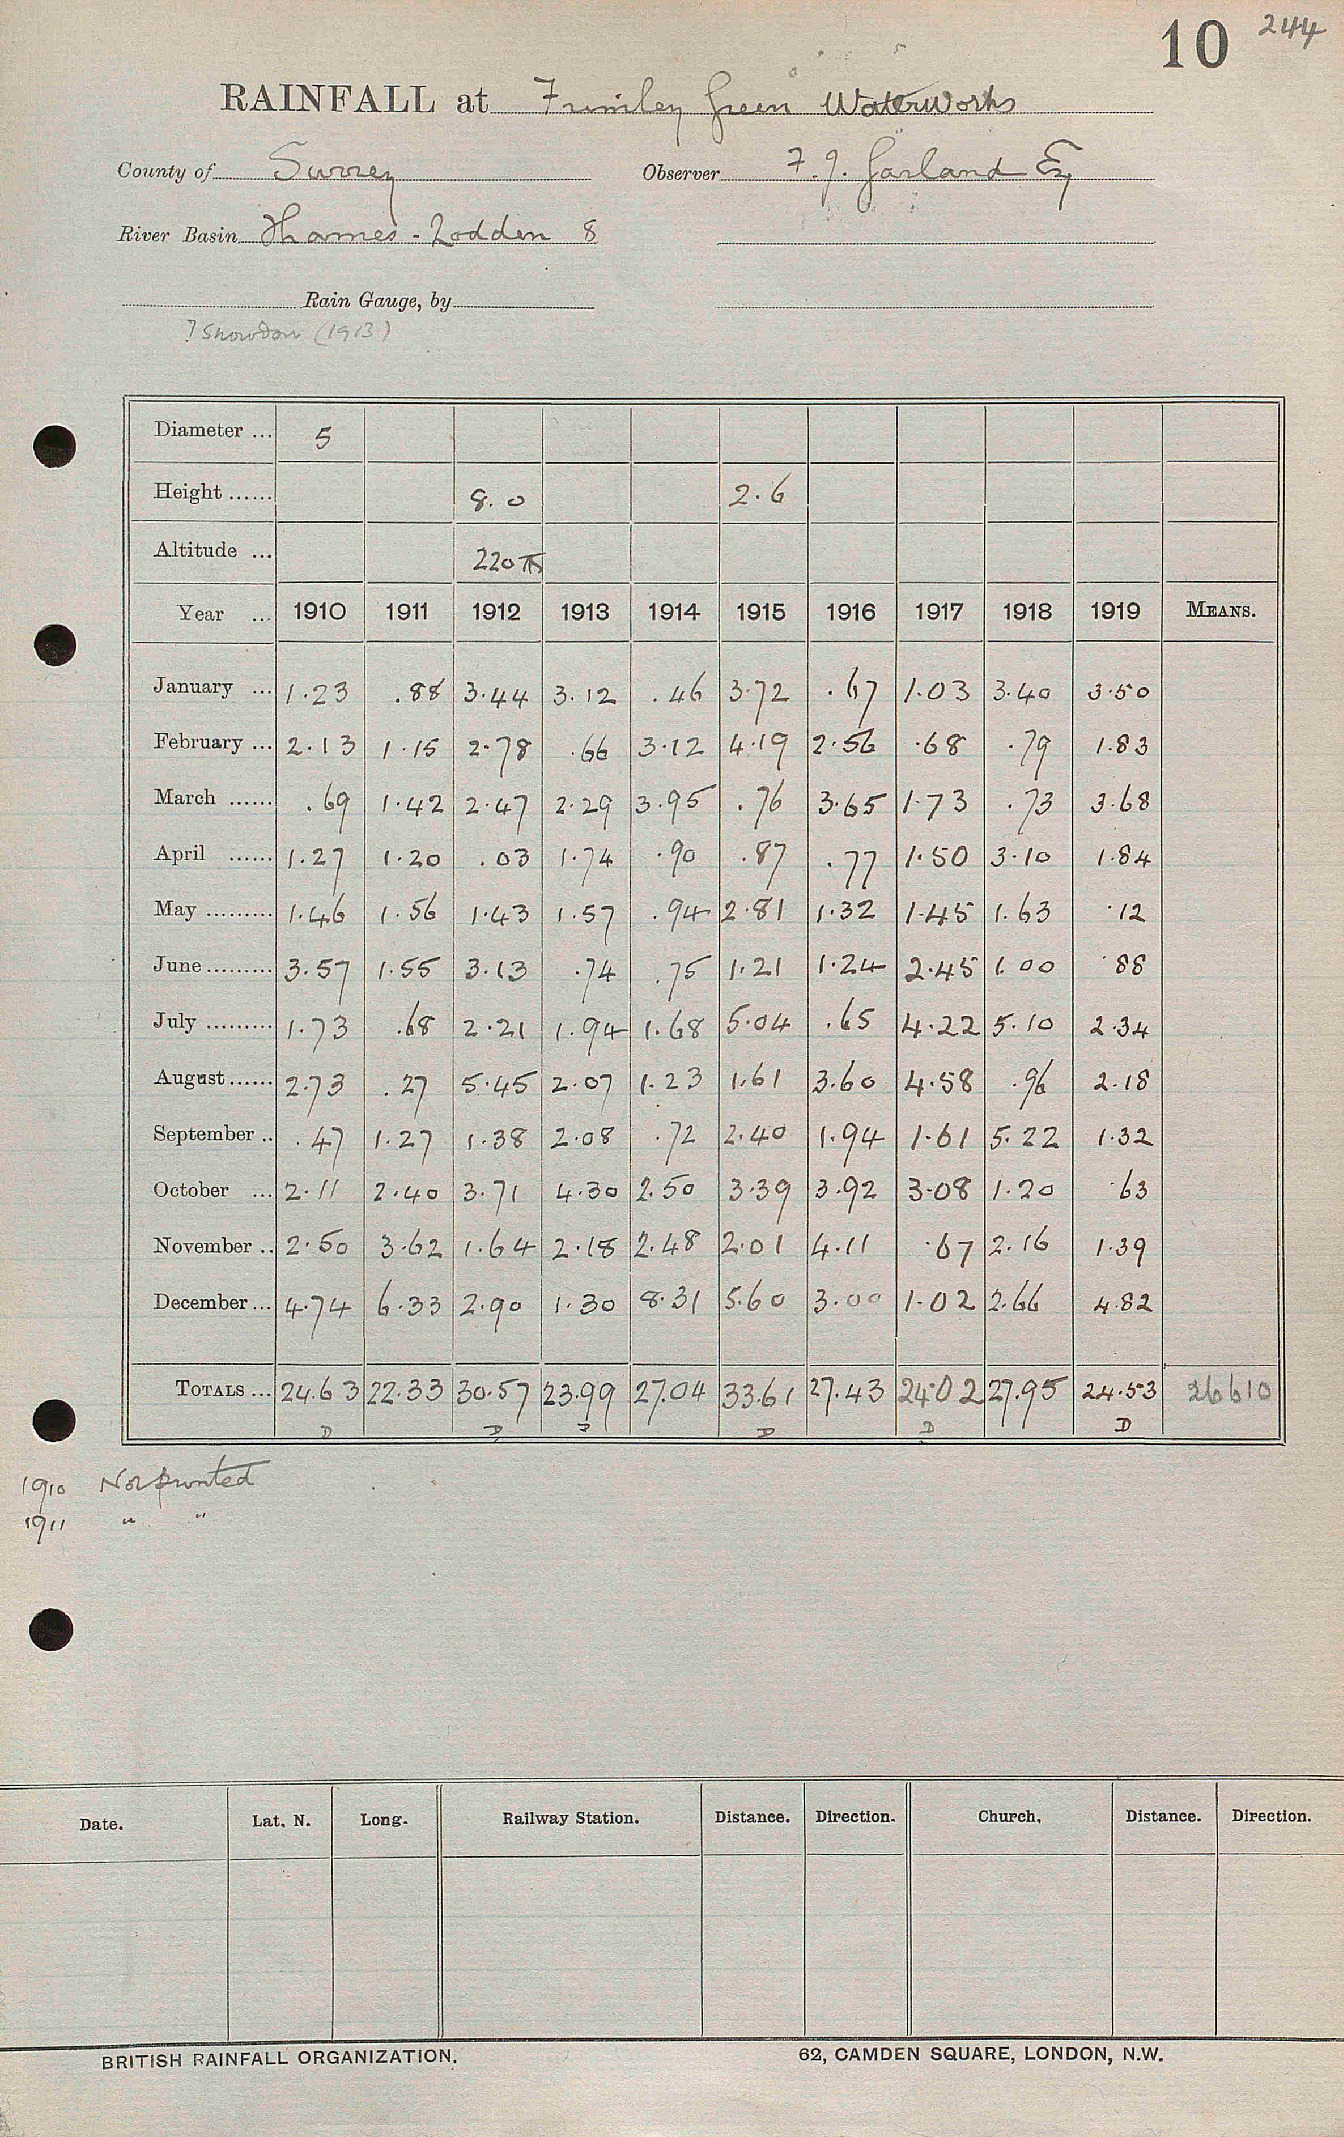 10 244
RAINFALL at Frimley Green Waterworks
County of Surrey Observer F. J. Garland Esq
River Basin Thames - Lodden 8
Rain Gauge, by
? Snowdon (1913)
Diameter ... 5
Height ...... 8.0 2.6
Altitude ... 220
Year ... 1910 1911 1912 1913 1914 1915 1916 1917 1918 1919 MEANS.
January ... 1.23 .88 3.44 3.12 .46 3.72 .67 1.03 3.40 3.50
February ... 2.13 1.15 2.78 .66 3.12 4.19 2.56 .68 .79 1.83
March ...... .69 1.42 2.47 2.29 3.95 .76 3.65 1.73 .73 3.68
April ...... 1.27 1.20 .03 1.74 .90 .87 .77 1.50 3.10 1.84
May ......... 1.46 1.56 1.43 1.57 .94 2.81 1.32 1.45 1.63 .12
June ......... 3.57 1.55 3.13 .74 .75 1.21 1.24 2.45 1.00 .88
July ......... 1.73 .68 2.21 1.94 1.68 5.04 .65 4.22 5.10 2.34
August ...... 2.73 .27 5.45 2.07 1.23 1.61 3.60 4.58 .96 2.18
September .. .47 1.27 1.38 2.08 .72 2.40 1.94 1.61 5.22 1.32
October ... 2.11 2.40 3.71 4.30 2.50 3.39 3.92 3.08 1.20 .63
November .. 2.50 3.62 1.64 2.18 2.48 2.01 4.11 .67 2.16 1.39
December ... 4.74 6.33 2.90 1.30 8.31 5.60 3.00 1.02 2.66 4.82
TOTALS ... 24.63 22.33 30.57 23.99 27.04 33.61 27.43 24.02 27.95 24.53 26610
D D D D D D
1910 Not printed
1911 " "
Date. Lat. N. Long. Railway Station. Distance. Direction. Church. Distance. Direction.
BRITISH RAINFALL ORGANIZATION. 62, CAMDEN SQUARE, LONDON, N.W.